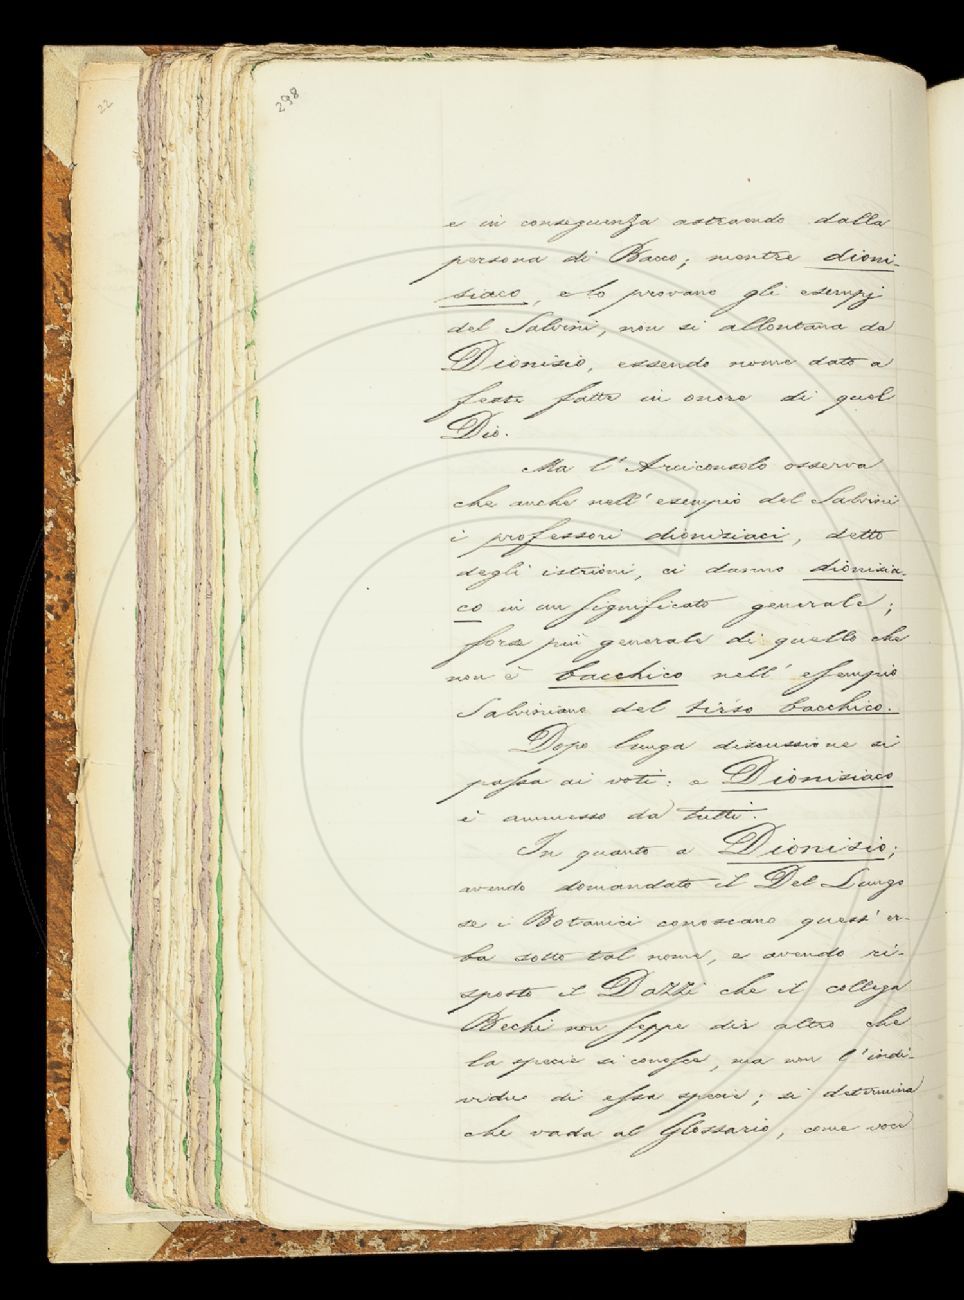 22
298
e in conseguenza astraendo dalla
persona di Bacco; mentre dioni-
siaco, e lo provano gli esempj
del Salvini, non si allontana da
Dionisio, essendo nome dato a
feste fatte in onore di quel
Dio.
Ma l'Arciconsolo osserva
che anche nell'esempio del Salvini
i professori dionisiaci, detto
degli istrioni, ci danno dionisia-
co in un significato generale;
forse più generale di quello che
non è bacchico nell'esempio
Salviniano del tirso bacchico.
Dopo lunga discussione si
passa ai voti: e Dionisiaco
è ammesso da tutti.
In quanto a Dionisio;
avendo domandato il Del Lungo
se i Botanici conoscano quest'er-
ba sotto tal nome, e avendo ri-
sposto il Dazzi che il collega
Bechi non seppe dir altro che
la specie si conosce, ma non l'indi-
viduo di essa specie; si determina
che vada al Glossario, come voci